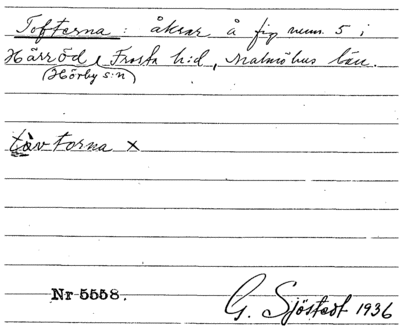 Tofterna: åkrar å fig num. 5 i
Härröd, Frosta h:d, Malmöhus län.
(Hörby s:n)
tåvtorna ×
Nr 5558.
G. Sjöstedt 1936